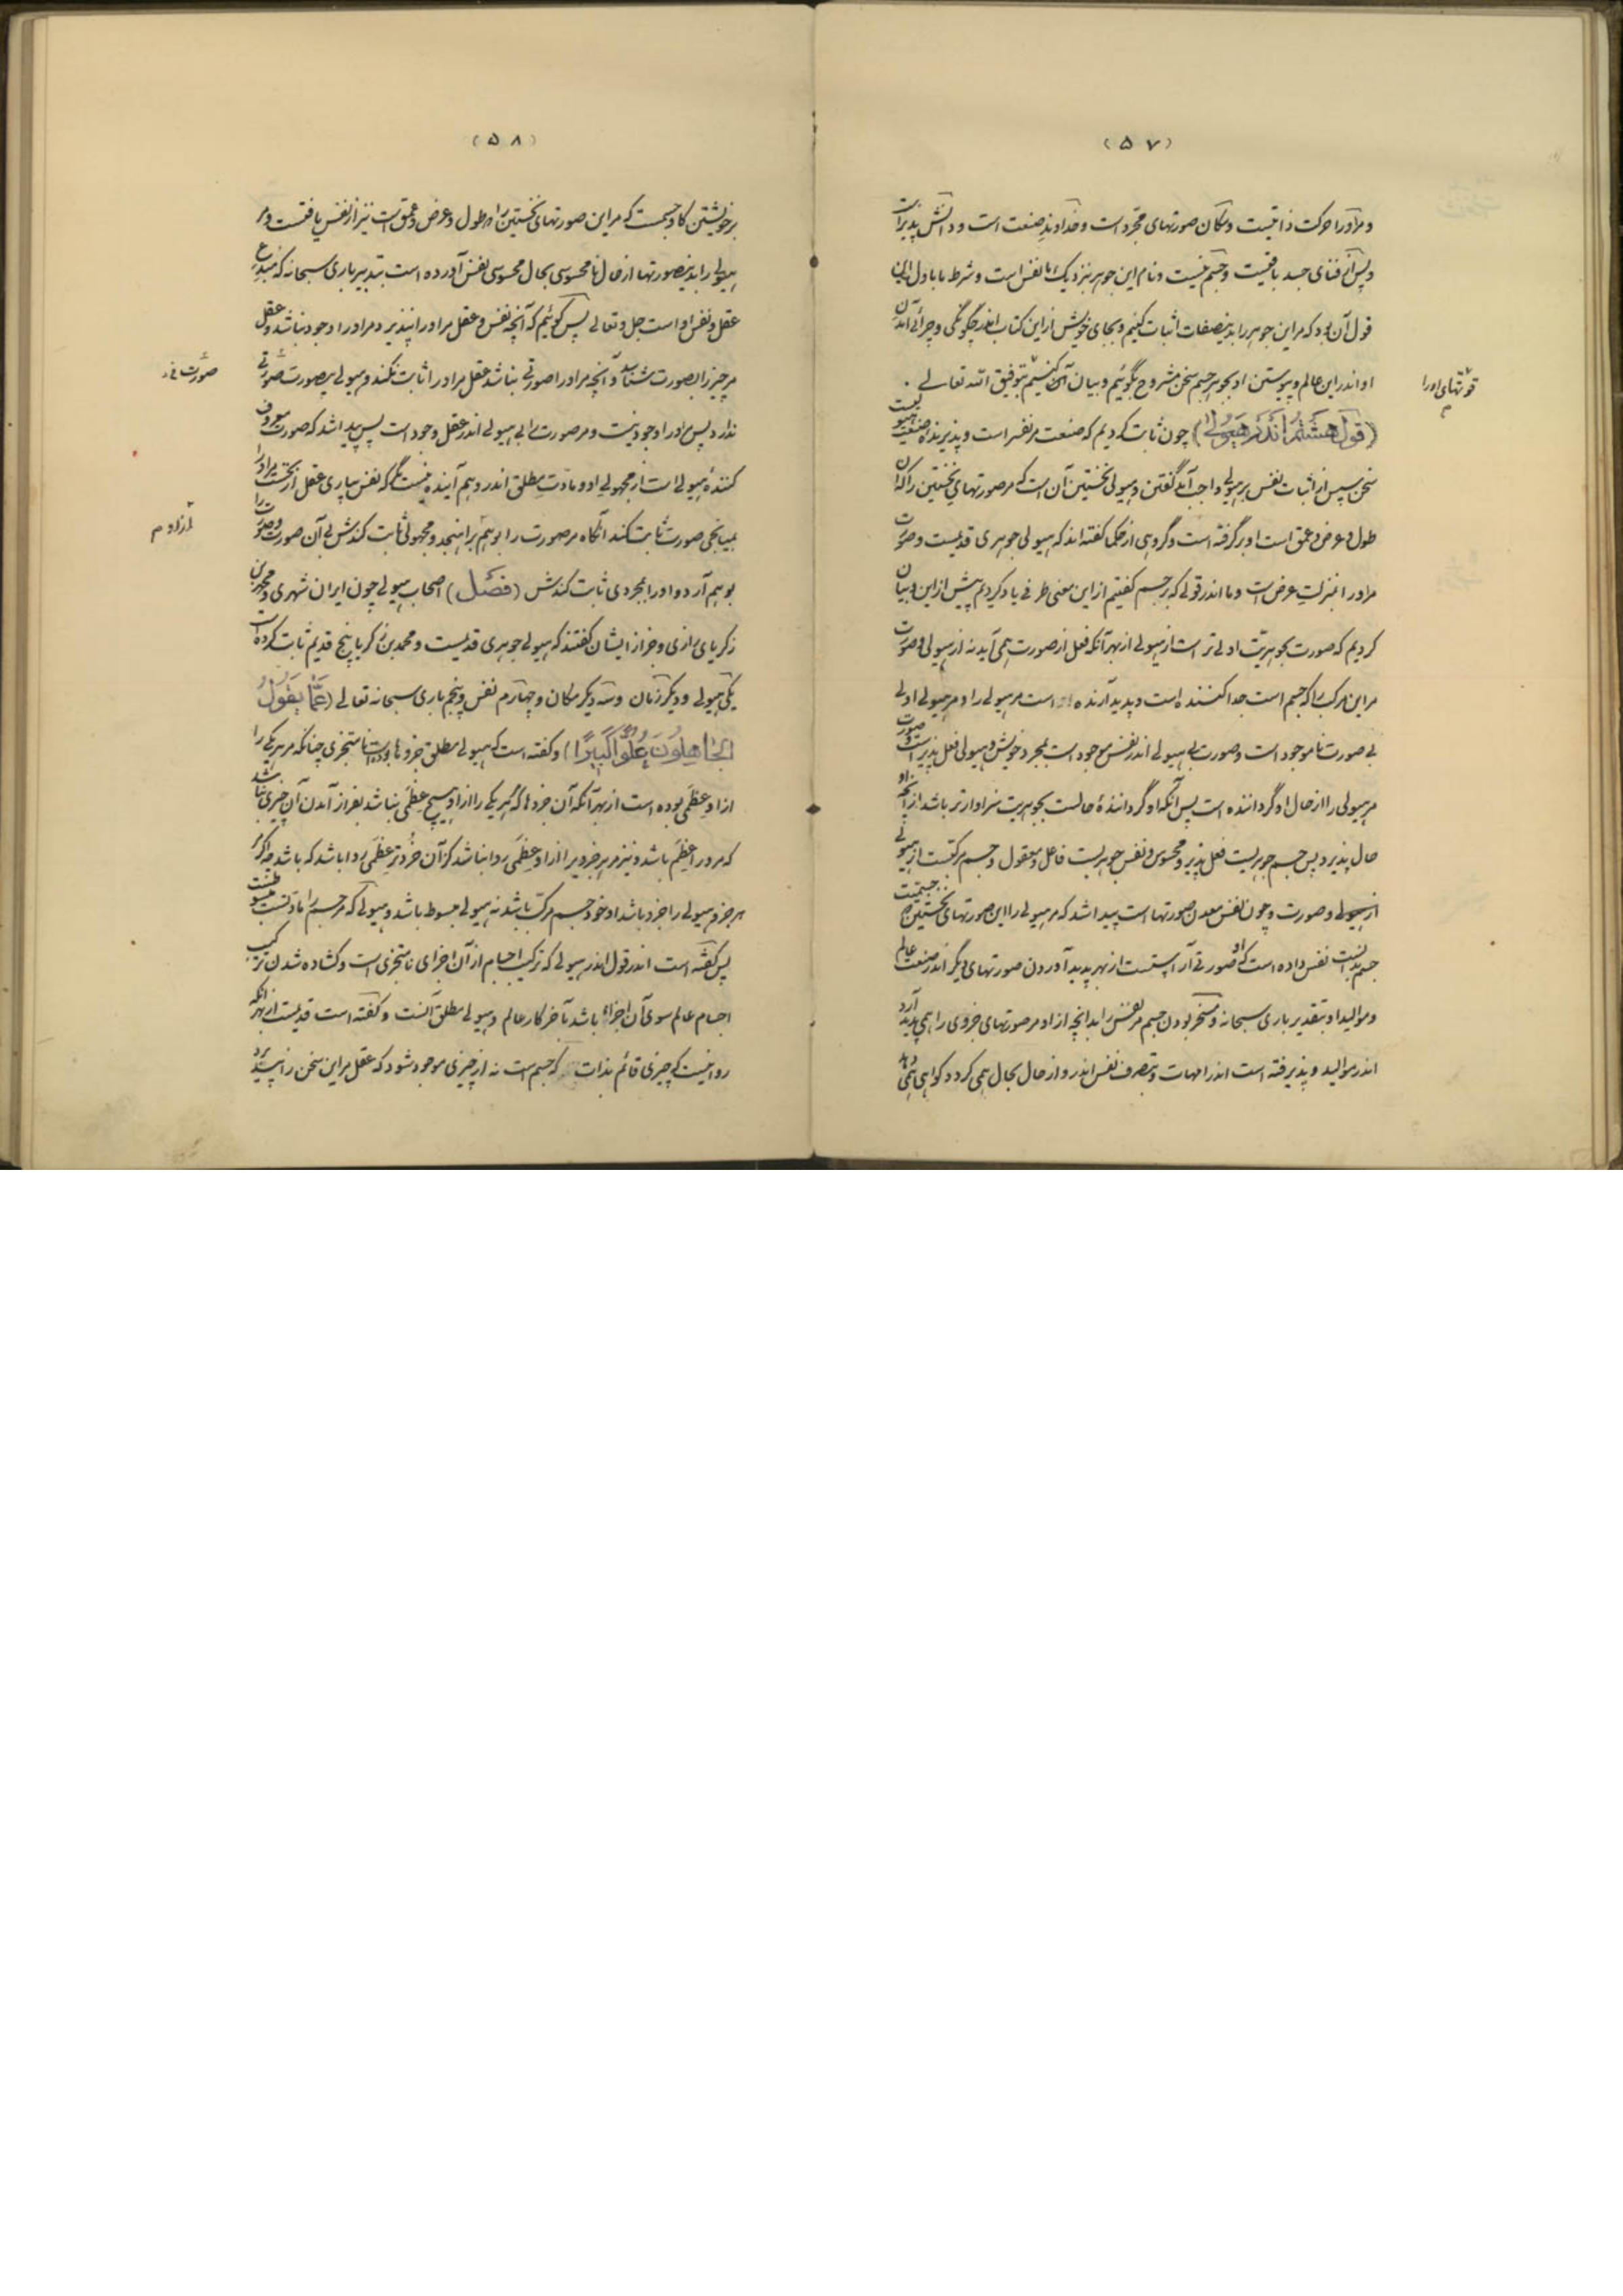 (۵۷)
و مر او را حرکت ذاتیست و مکان صورتهای مجرد است و خداوند صنعت است و دانش پذیر است
و پس از فنای جسد باقیست و جسم نیست و نام این جوهر بنزدیک ما نفس است و شرط ما باول این
قول آن بود که مر این جوهر را بدین صفات اثبات کنیم و بجای خویش از این کتاب اندر چگونگی و چرائی آمدن
او اندر این عالم و پیوستن او بجوهر جسم سخن مشروح بگوئیم و بیان آن کنیم بتوفیق الله تعالی .
قوتهای او را
م
(قول هشتم اندر هیولی) چون ثابت کردیم که صنعت مر نفس راست و پذیرنده صنعت هیولیست
سخن سپس از اثبات نفس بر هیولی واجب آمد گفتن و هیولی نخستین آن است که مر صورتهای نخستین را که آن
طول و عرض و عمق است او بر گرفته است و گروهی از حکما گفته اند که هیولی جوهری قدیمست و صورت
مر او را بمنزلت عرض است و ما اندر قولی که بر جسم گفتیم از این معنی طرفی یاد کردیم پیش از این و بیان
کردیم که صورت بجوهریت اولی تر است از هیولی از بهر آنکه فعل از صورت همی آید نه از هیولی و صورت
مر این مرکب را که جسم است جدا کننده است و پدید آرنده است مر هیولی را و مر هیولی اولی
بی صورت نا موجود است و صورت بی هیولی اندر نفس موجود است بمجرد خویش و هیولی فعل پذیر است و صورت
مر هیولی را از حال او گرداننده است پس آنکه او گرداننده حالست بجوهریت سزاوارتر باشد از آنچه او
حال پذیرد پس جسم جوهریست فعل پذیر و محسوس و نفس جوهریست فاعل و معقول و جسم مرکبست از هیولی
از هیولی و صورت و چون نفس معدن صورتها است پیدا شد که مر هیولی را این صورتهای نخستین که جسمیت
جسم بدانست نفس داده است که او صورتی آراستست از بهر پدید آوردن صورتهای دیگر اندر صنعت عالم
و موالید او بتقدیر باری سبحانه و مسخر بودن جسم مر نفس را بدانچه از او مر صورتهای جزوی را همی پدید آرد
اندر موالید و پذیرفته است اندر امهات و بتصرف نفس اندر و از حال بحال همی گردد گواهی همی دهد
(۵۸)
بر خویشتن که او جسمست که مر این صورتهای نخستین را از طول و عرض و عمق است نیز از نفس یافتست و مر
هیولی را بدین صورتها از حال نا محسوسی بحال محسوسی نفس آورده است بتدبیر باری سبحانه که مبدع
عقل و نفس او است جل و تعالی پس گوئیم که آنچه نفس و عقل مر او را نپذیرد مر او را وجود نباشد و عقل
مر چیز را بصورت شناسد و آنچه مر او را صورتی نباشد عقل مر او را ثابت نکند و هیولی بی صورت صورتی
صورت فی
ندارد پس مر او را وجود نیست و مر صورت را بی هیولی اندر عقل وجود است پس پیدا شد که صورت معروف
کننده هیولی است از مجهولی او و مادت مطلق اندر وهم آینده نیست مگر که نفس بیاری عقل از نخست مر او را
بمیانجی صورت ثابت کند آنگاه مر صورت را بوهم بر آهنجد و مجهولی ثابت کندش بی آن صورت و صورت را
از او م
بوهم آرد و او را بمجردی ثابت کندش (فصل) اصحاب هیولی چون ایران شهری و محمد بن
زکریای رازی و جز از ایشان گفتند که هیولی جوهری قدیمست و محمد بن زکریا پنج قدیم ثابت کرده است
یکی هیولی و دیگر زمان و سه دیگر مکان و چهارم نفس و پنجم باری سبحانه تعالی (عَمَّا یَقُولُ
الجَاهِلُونَ عُلُوًّا کَبِیرًا) و گفته است که هیولی مطلق جزوها بوده است نا متجزی چنانکه مر هر یکی را
از او عظمی بوده است از بهر آنکه آن جزوها که هر یکی را از او هیچ عظمی نباشد بفراز آمدن آن چیزی نباشد
که مر او را عظم باشد و نیز مر هر جزوی را از او عظمی روا نباشد کز آن خردتر عظمی روا باشد که باشد چه اگر
هر جزو هیولی را جزو باشد او خود جسم مرکب باشد نه هیولی مبسوط باشد و هیولی که مر جسم را مادتست مبسوطست
پس گفته است اندر قول اندر هیولی که ترکیب اجسام از آن اجزای نا متجزی است و گشاده شدن ترکیب
اجسام عالم سوی آن اجزاء باشد بآخر کار عالم و هیولی مطلق آنست و گفته است قدیمست از بهر آنکه
روا نیست که چیزی قائم بذات که جسم است نه از چیزی موجود شود که عقل مر این سخن را نپذیرد